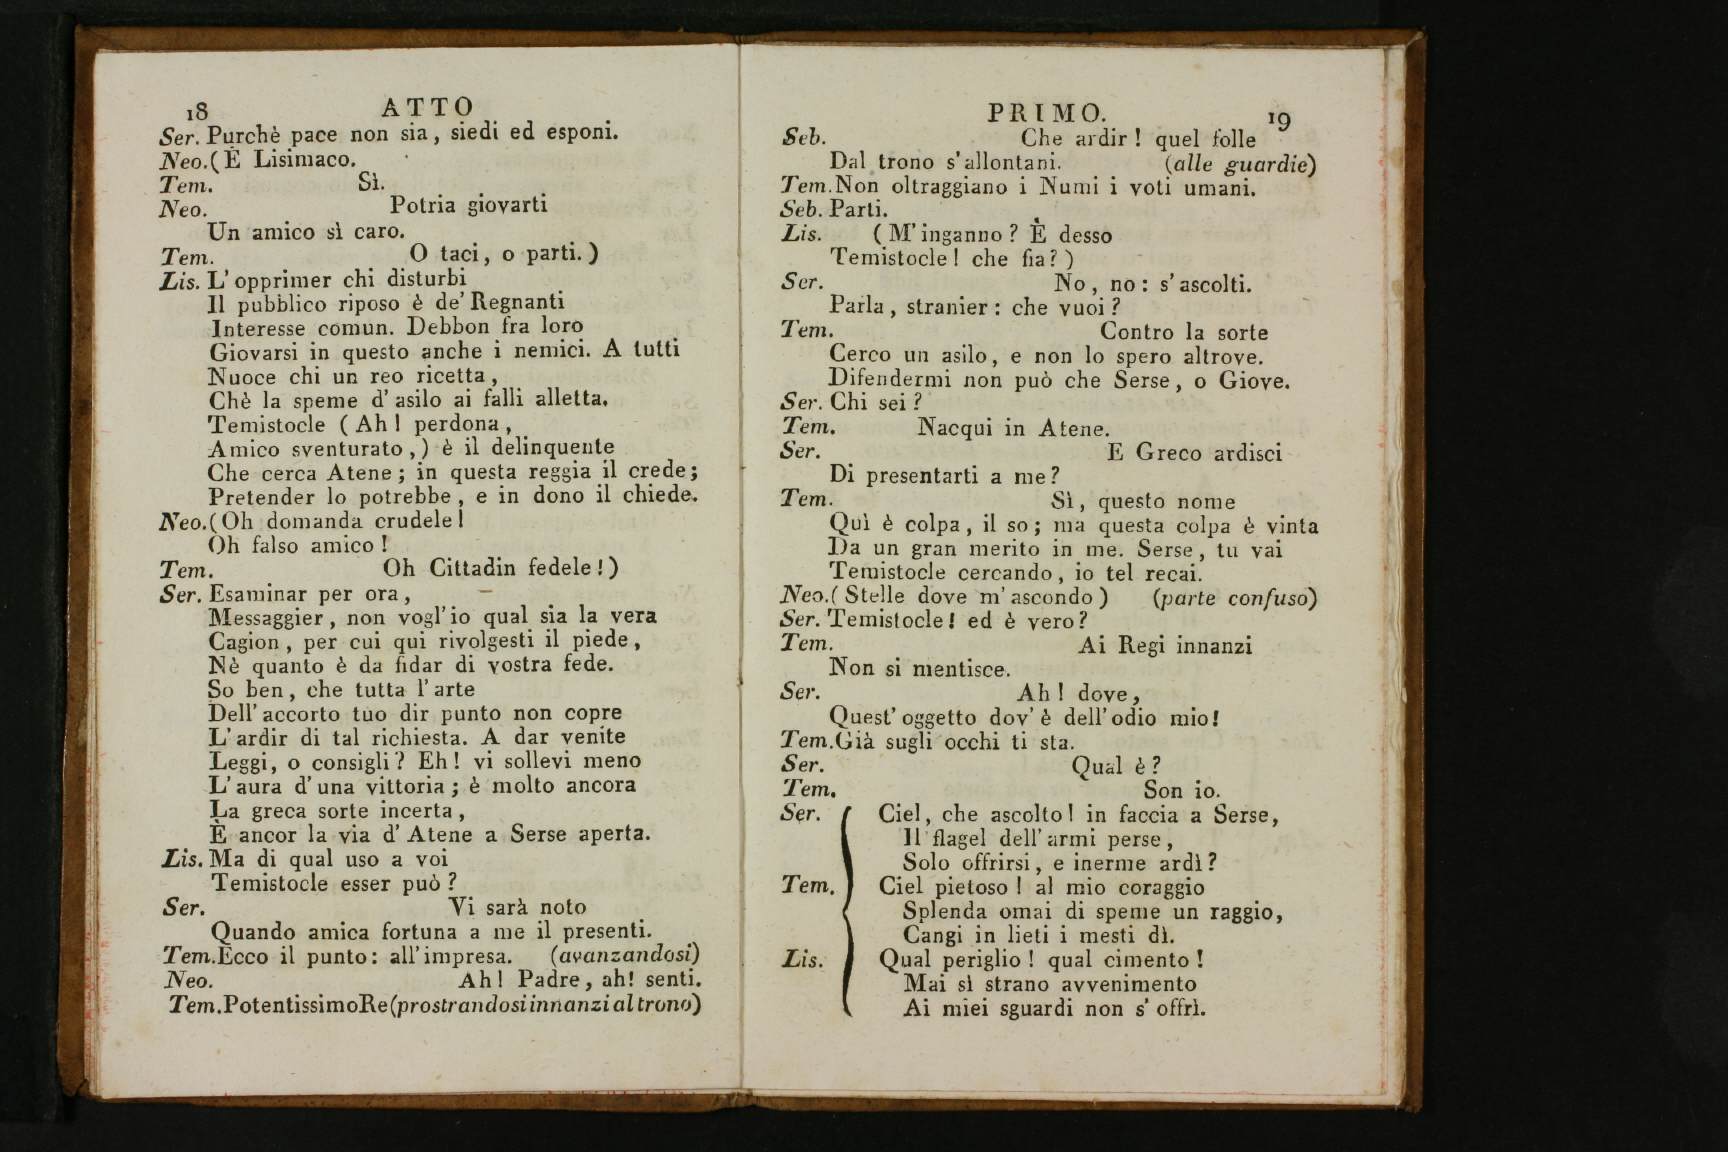 18 ATTO
Ser. Purchè pace non sia, siedi ed esponi.
Neo.(È Lisimaco.
Tem. Sì.
Neo. Potria giovarti
Un amico sì caro.
Tem. O taci, o parti.)
Lis. L'opprimer chi disturbi
Il pubblico riposo è de' Regnanti
Interesse comun. Debbon fra loro
Giovarsi in questo anche i nemici. A tutti
Nuoce chi un reo ricetta,
Chè la speme d'asilo ai falli alletta.
Temistocle (Ah! perdona,
Amico sventurato,) è il delinquente
Che cerca Atene; in questa reggia il crede;
Pretender lo potrebbe, e in dono il chiede.
Neo.(Oh domanda crudele!
Oh falso amico!
Tem. Oh Cittadin fedele!)
Ser. Esaminar per ora,
Messaggier, non vogl'io qual sia la vera
Cagion, per cui qui rivolgesti il piede,
Nè quanto è da fidar di vostra fede.
So ben, che tutta l'arte
Dell'accorto tuo dir punto non copre
L'ardir di tal richiesta. A dar venite
Leggi, o consigli? Eh! vi sollevi meno
L'aura d'una vittoria; è molto ancora
La greca sorte incerta,
È ancor la via d'Atene a Serse aperta.
Lis. Ma di qual uso a voi
Temistocle esser può?
Ser. Vi sarà noto
Quando amica fortuna a me il presenti.
Tem.Ecco il punto: all'impresa. (avanzandosi)
Neo. Ah! Padre, ah! senti.
Tem.PotentissimoRe(prostrandosi innanzi al trono)
PRIMO. 19
Seb. Che ardir! quel folle
Dal trono s'allontani. (alle guardie)
Tem.Non oltraggiano i Numi i voti umani.
Seb. Parti.
Lis. (M'inganno? È desso
Temistocle! che fia?)
Ser. No, no: s'ascolti.
Parla, stranier: che vuoi?
Tem. Contro la sorte
Cerco un asilo, e non lo spero altrove.
Difendermi non può che Serse, o Giove.
Ser. Chi sei?
Tem. Nacqui in Atene.
Ser. E Greco ardisci
Di presentarti a me?
Tem. Sì, questo nome
Quì è colpa, il so; ma questa colpa è vinta
Da un gran merito in me. Serse, tu vai
Temistocle cercando, io tel recai.
Neo.(Stelle dove m'ascondo) (parte confuso)
Ser. Temistocle! ed è vero?
Tem. Ai Regi innanzi
Non si mentisce.
Ser. Ah! dove,
Quest'oggetto dov'è dell'odio mio!
Tem.Già sugli occhi ti sta.
Ser. Qual è?
Tem. Son io.
Ser. Ciel, che ascolto! in faccia a Serse,
Il flagel dell'armi perse,
Solo offrirsi, e inerme ardì?
Tem. Ciel pietoso! al mio coraggio
Splenda omai di speme un raggio,
Cangi in lieti i mesti dì.
Lis. Qual periglio! qual cimento!
Mai sì strano avvenimento
Ai miei sguardi non s'offrì.